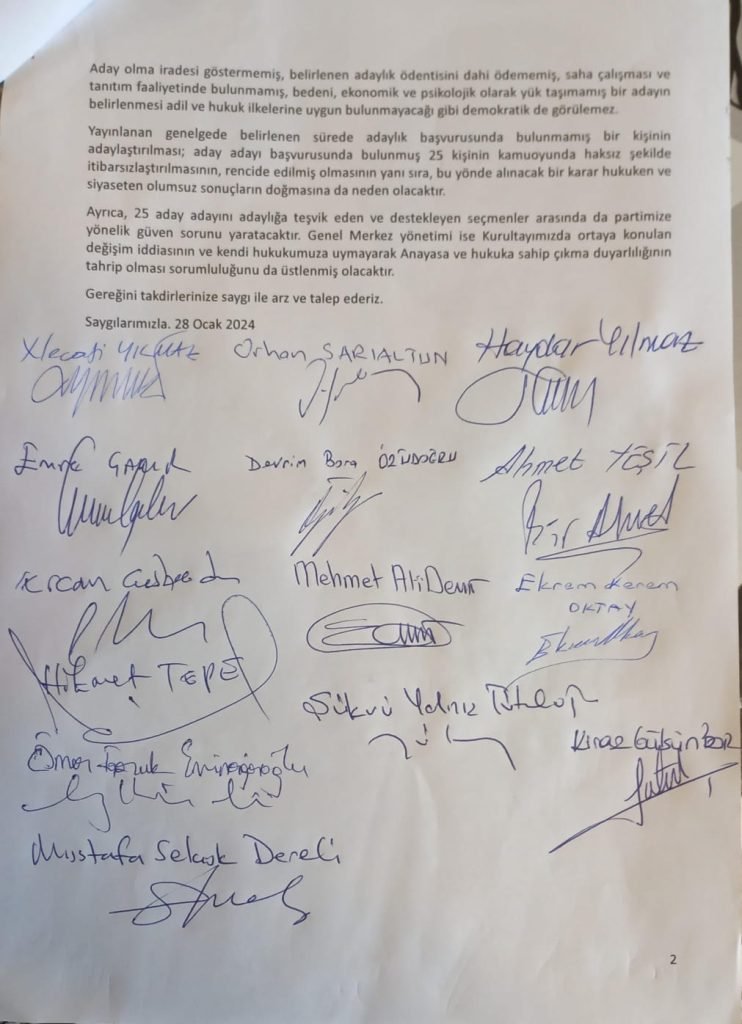 Aday olma iradesi göstermemiş, belirlenen adaylık ödentisini dahi ödememiş, saha çalışması ve
tanıtım faaliyetinde bulunmamış, bedeni, ekonomik ve psikolojik olarak yük taşımamış bir adayın
belirlenmesi adil ve hukuk ilkelerine uygun bulunmayacağı gibi demokratik de görülemez.
Yayınlanan genelgede belirlenen sürede adaylık başvurusunda bulunmamış bir kişinin
adaylaştırılması; aday adayı başvurusunda bulunmuş 25 kişinin kamuoyunda haksız şekilde
itibarsızlaştırılmasının, rencide edilmiş olmasının yanı sıra, bu yönde alınacak bir karar hukuken ve
siyaseten olumsuz sonuçların doğmasına da neden olacaktır.
Ayrıca, 25 aday adayını adaylığa teşvik eden ve destekleyen seçmenler arasında da partimize
yönelik güven sorunu yaratacaktır. Genel Merkez yönetimi ise Kurultayımızda ortaya konulan
değişim iddiasının ve kendi hukukumuza uymayarak Anayasa ve hukuka sahip çıkma duyarlılığının
tahrip olması sorumluluğunu da üstlenmiş olacaktır.
Gereğini takdirlerinize saygı ile arz ve talep ederiz.
Saygılarımızla. 28 Ocak 2024
Necati YILMAZ Orhan SARIALTUN Haydar Yılmaz
Emre Devrim Bora ÖZÜDOĞRU Ahmet YEŞİL
Ercan Mehmet Ali Demir Ekrem Kerem
OKTAY
Hikmet TEPE
Şükrü Yalnız
Kiraz
Ömer Faruk Eminağaoğlu
Mustafa Selçuk Dereli
2